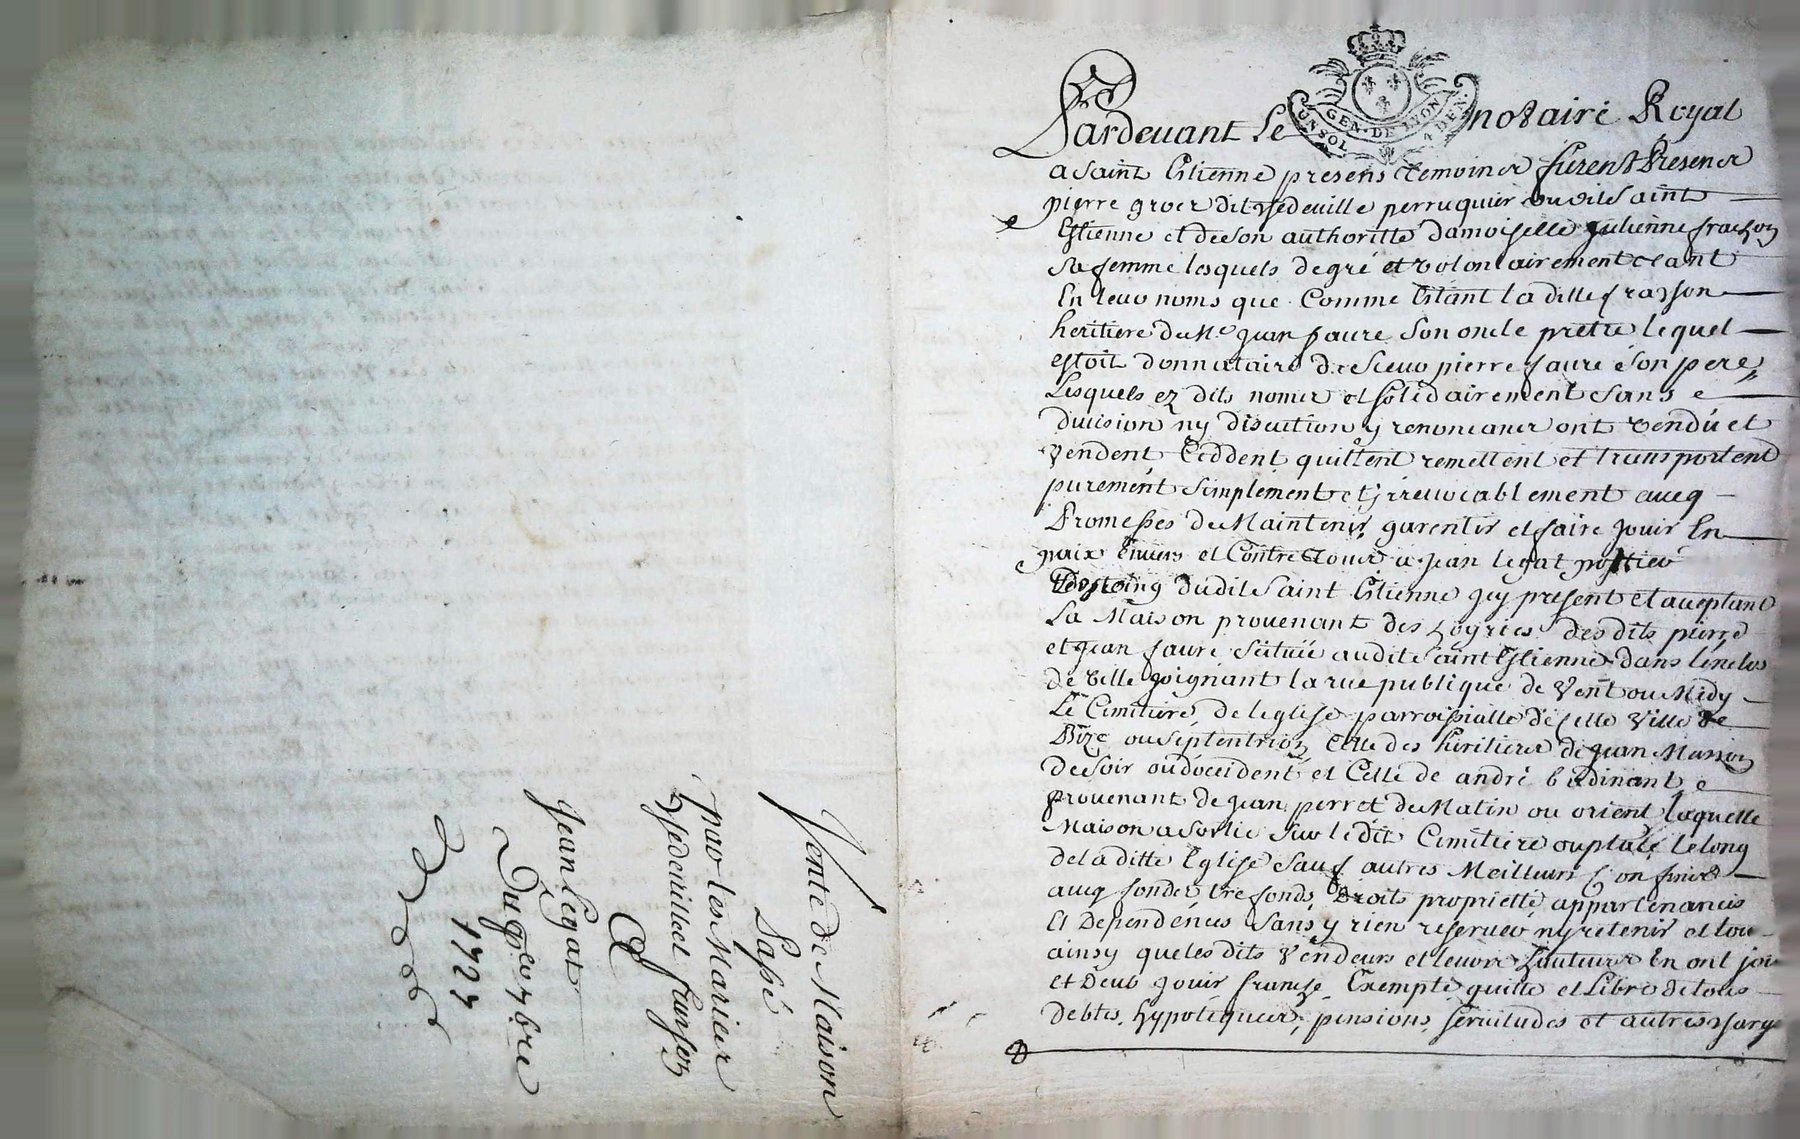 Vente de Maison
Passé
par les Mariez
hsedeville et franson
A
Jean Legat
Du 9bre
1727
GEN. DE LYON
UN SOL 4 DEN.
Pardevant Le notaire Royal
a saint Etienne presens temoines furent Presenes
pierre groer dit hsedeville perruquier dudit saint
Estienne et de son authoritté damoiselle Julienne frasson
sa femme lesquels de gré et volontairement tant
En leur noms que Comme Etant la ditte frasson
heritiere du Me Jean faure son oncle prettre lequel
estoit donnataire de Sieur pierre faure son pere
Lesquels ez dits nomes et solidairement sans
division ny discution y renonceant ont vendu et
vendent Ceddent quittent remettent et transportent
purement simplement et irrevocablement avecq
Promesses de Maintenir garentir et faire jouir En
paix Envers et Contre Tous a Jean Legat
dudit saint Etienne qui present et aceptant
La Maison provenant des hoyries des dits pierre
et Jean faure scituée audit saint Estienne dans l'enclos
de ville joignant la rue publique de Vent ou Midy
Le Cimitiere de leglise parroissialle de cette ville de
Bize ou septentrion Celle des heritieres de Jean Masson
de soir ou doccident et Celle de andré badinant
provenant de Jean perret du Matin ou orient laquelle
Maison a sortie sur le dit Cimitiere ou place le long
de la ditte Eglise sauf autres Meilleurs Confins
avecq fondes trefonds, Droits proprietté appartenances
Et Dependences sans y rien reserver ny retenir et tou
ainsy que les dits vendeurs et leurs hauteurs En ont joui
et Deub jouir franche Exempte quitte et Libre de tous
debtes, hypoteques, pensions, servitudes et autres charge